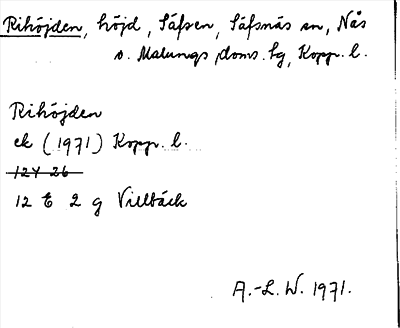 Rihöjden, höjd, Säfsen, Säfsnäs sn, Nås
o. Malungs doms. hg, Kopp. l.
Rihöjden
ek (1971) Kopp. l.
12 E 2 g Villbäck
A.-L. W. 1971.